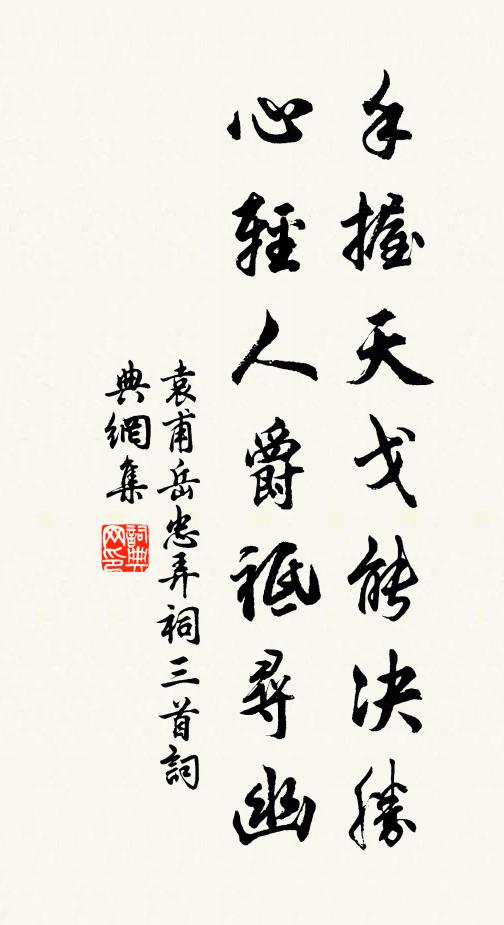 手握天戈能决勝
心輕人爵祗尋幽
袁甫岳忠弄祠三首詞
典網集
詞典
网印